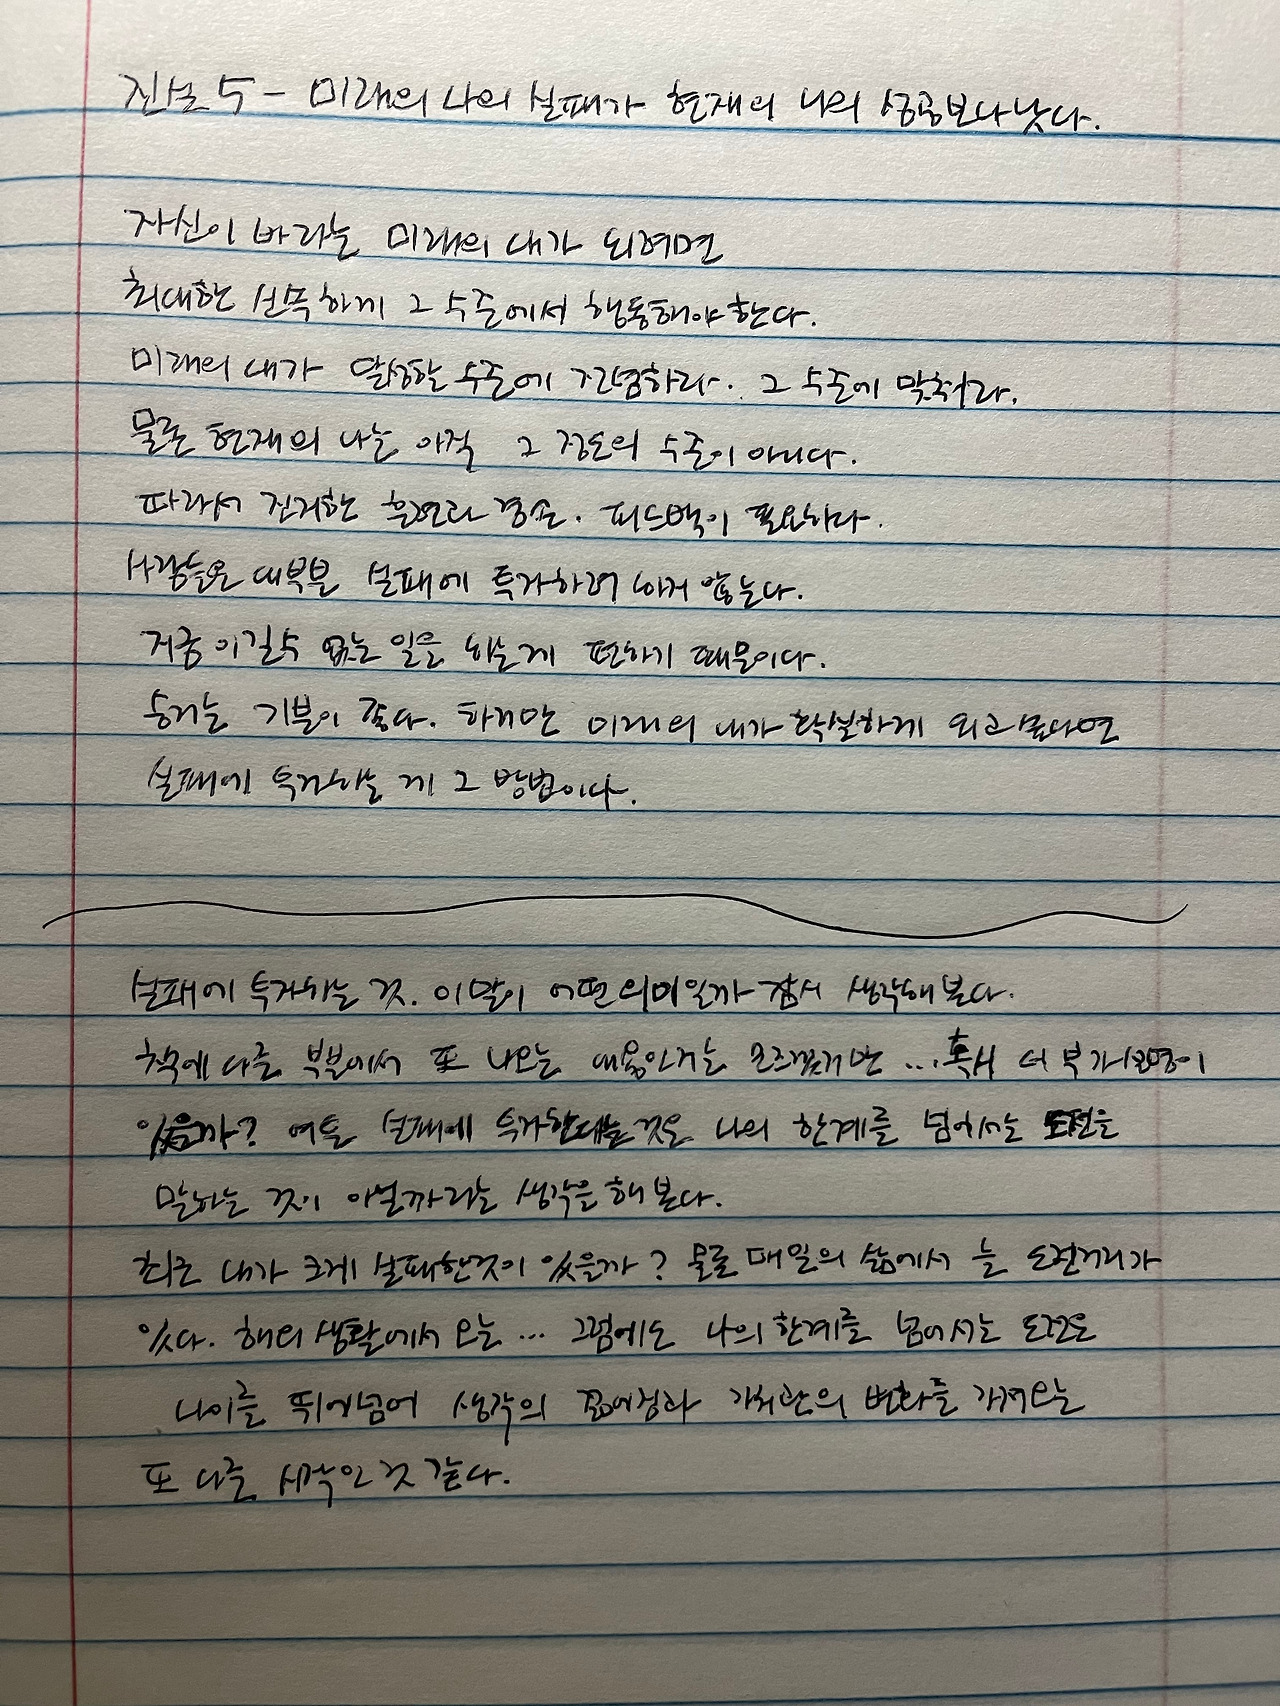 진실 5 - 미래의 나의 실패가 현재의 나의 성공보다 낫다.
자신이 바라는 미래의 내가 되려면
최대한 신속하게 그 수준에서 행동해야 한다.
미래의 내가 달성할 수준에 전념하라. 그 수준에 맞춰라.
물론 현재의 나는 아직 그 정도의 수준이 아니다.
따라서 진지한 훈련과 겸손. 피드백이 필요하다.
사람들은 대부분 실패에 투자하려 하지 않는다.
지금 이길 수 있는 일을 하는게 편하기 때문이다.
승리는 기분이 좋다. 하지만 미래의 내가 확실하게 되고 싶다면
실패에 투자하는 게 그 방법이다.
실패에 투자하는 것. 이 말이 어떤 의미일까 잠시 생각해 본다.
책에 다른 부분에서 또 나오는 내용인지는 모르겠지만 ... 혹시 더 부가설명이
있을까? 여튼 실패에 투자한다는 것은 나의 한계를 넘어서는 도전을
말하는 것이 아닐까라는 생각을 해 본다.
최근 내가 크게 실패한것이 있을까? 물론 매일의 삶에서 늘 도전거리가
있다. 해외 생활에서 오는 ... 그럼에도 나의 한계를 넘어서는 도전은
나이를 뛰어넘어 생각의 과 가치관의 변화를 가져오는
또 다른 시작인 것 같다.